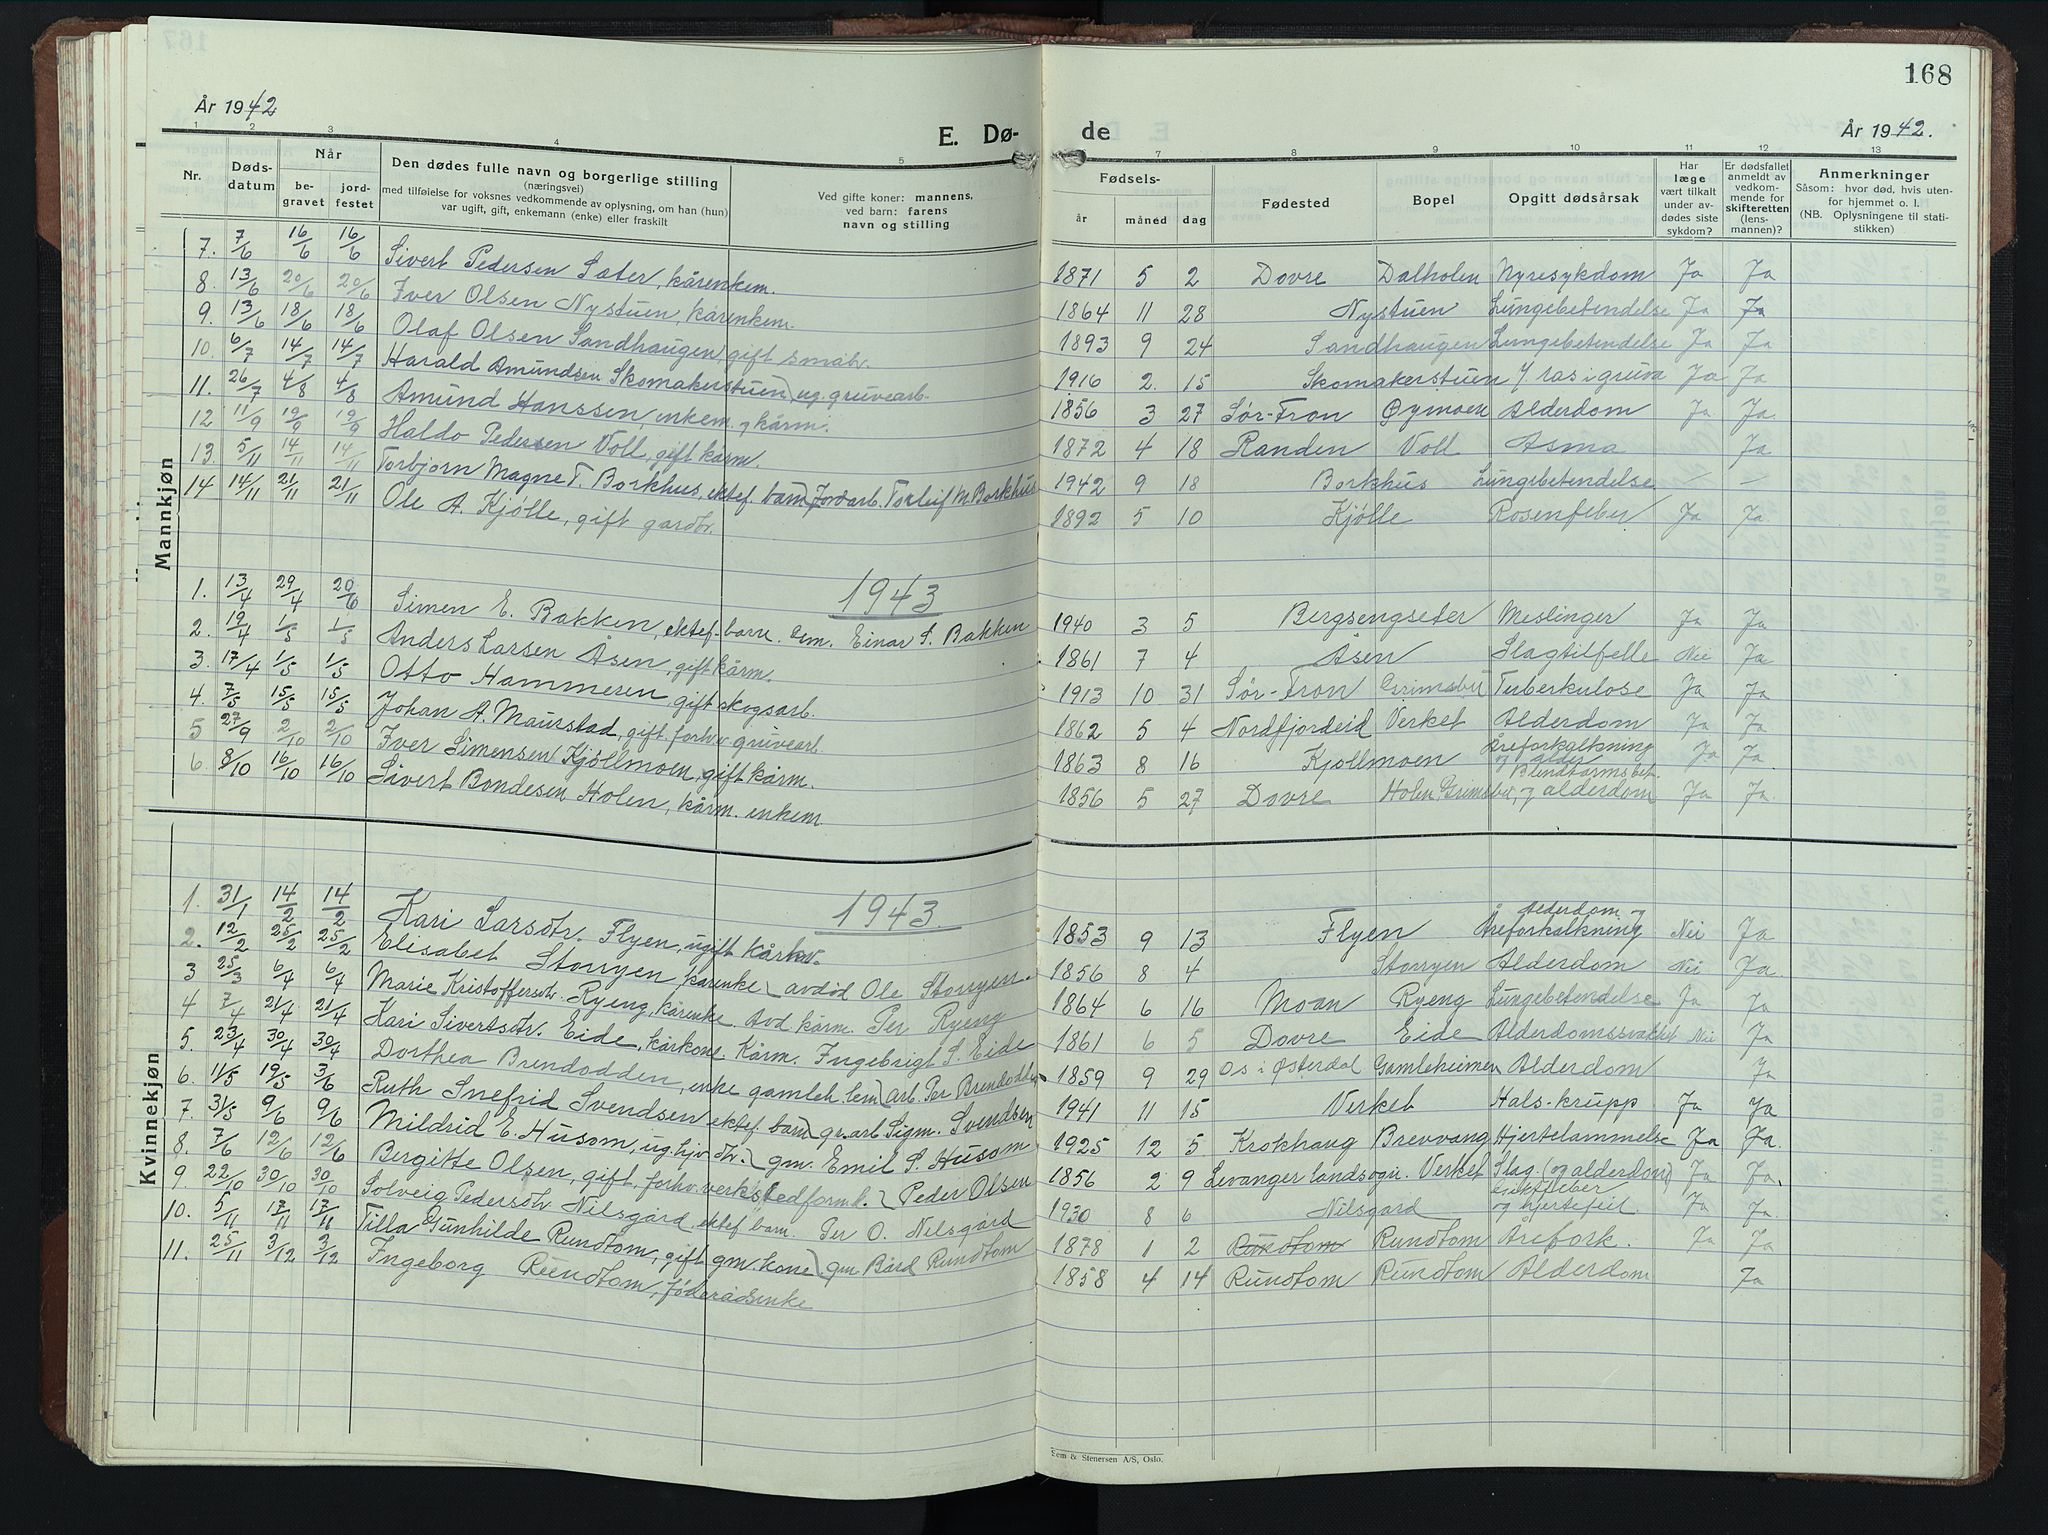 168
År 1942
E. Dø-
de
År 1942.
1 2 3 4 5
7 8 9 10 11 12 13
Nr.
Døds-
datum
Når
be-
gravet
jord-
festet
Den dødes fulle navn og borgerlige stilling
(næringsvei)
med tilføielse for voksnes vedkommende av oplysning, om han (hun)
var ugift, gift, enkemann (enke) eller fraskilt
Ved gifte koner: mannens,
ved barn: farens
navn og stilling
Fødsels-
år måned dag
Fødested
Bopel
Opgitt dødsårsak
Har
læge
vært tilkalt
under av-
dødes siste
sykdom?
Er dødsfallet
anmeldt av
vedkom-
mende for
skifteretten
(lens-
mannen)?
Anmerkninger
Såsom: hvor død, hvis uten-
for hjemmet o. l.
(NB. Oplysningene til stati-
stikken)
Mannkjøn
7. 7/6 16/6 16/6 Sivert Pedersen Sæter, kårenkem. 1871 5 2 Dovre Dalholen Nyresykdom Ja Ja
8. 13/6 20/6 20/6 Iver Olsen Nystuen, kårenkem. 1864 11 28 Nystuen Lungebetendelse Ja Ja
9. 13/6 18/6 18/6 Olaf Olsen Sandhaugen, gift småbr. 1893 9 24 Sandhaugen Lungebetendelse Ja Ja
10. 6/7 14/7 14/7 Harald Amundsen Skomakerstuen, ug. gruvearb. 1916 2. 15 Skomakerstuen I ras i gruva Ja Ja
11. 26/7 4/8 4/8 Amund Hanssen, enkem. og kårm. 1856 3 27 Sør-Fron Øymoen Alderdom Ja Ja
12 11/9 19/9 19/9 Haldo Pedersen Voll, gift kårm. 1872 4 18 Randen Voll Asma Ja
13. 5/11 14/11 14/11 Torbjørn Magne T. Borkhus, ektef. barn Jordarb. Torleif M. Borkhus 1942 9 18 Borkhus Lungebetendelse – –
14 14/11 21/11 21/11 Ole A. Kjølle, gift gardbr. 1892 5 10 Kjølle Rosenfeber Ja Ja
1943
1. 13/4 29/4 20/6 Simen E. Bakken, ektef. barn. Einar S. Bakken 1940 3 5 Bergsengseter Meslinger Ja Ja
2. 19/4 1/5 1/5 Anders Larsen Åsen, gift kårm. 1861 7 4 Åsen Slagtilfelle Nei Ja
3. 17/4 1/5 1/5 Otto Hammeren, gift skogsarb. 1913 10 31 Sør-Fron Grimsbu Tuberkulose Ja Ja
4. 7/5 15/5 15/5 Johan A. Maurstad, gift, forhv. gruvearb. 1862 5 4 Nordfjordeid Verket Alderdom Ja Ja
5 27/9 2/10 2/10 Iver Simensen Kjøllmoen, gift kårm. 1863 8 16 Kjøllmoen Åreforkalkning og alder Ja Ja
6. 8/10 16/10 16/10 Sivert Bondesen Holen, kårm. enkem. 1856 5 27 Dovre Holen, Grimsbu Blindtarmsbet. og alderdom Ja Ja.
Kvinnekjøn
1943.
1. 31/1 14/2 14/2 Kari Larsdtr. Flyen, ugift kårkv. 1853 9 13 Flyen Alderdom og Åreforkalkning Nei Ja
2. 12/2 25/2 25/2 Elisabet Storryen, kårenke avdød Ole Storryen. 1856 8 4 Storryen Alderdom Nei Ja.
3 25/3 6/4 6/4 Marie Kristoffersdtr. Ryeng, kårenke. Avd kårm. Per Ryeng 1864 6 16 Moan Ryeng Lungebetendelse Ja Ja
4 7/4 21/4 21/4 Kari Sivertsdtr. Eide, kårkone. Kårm. Ingebrigt S. Eide 1861 6 5 Dovre Eide Alderdomssvakhet Nei Ja
5. 23/4 30/4 30/4 Dorthea Brendodden, enke gamleh. lem arb. Per Brendodden 1859 9 29 Os i Østerdal Gamleheimen Alderdom Ja
6. 11/5 19/5 3/6 Ruth Snefrid Svendsen ektef. barn gr.arb Sigm. Svendsen 1941 11 15 Verket Hals-krupp Ja Ja
7. 31/5 9/6 9/6 Mildrid E. Husom, ug. hjv. dtr. gm. Emil S. Husom 1925 12 5 Krokhaug Brevvang Hjertelammelse Ja Ja.
8. 7/6 12/6 12/6 Bergitte Olsen, gift, forhv. verkstedformb. Peder Olsen 1856 2 9 Levanger landsogn. Verket Slag. (og alderdom) Ja Ja.
9. 22/10 30/10 30/10 Solveig Pedersdtr Nilsgård, ektef barn. Per O. Nilsgård 1930 8 6 Nilsgard Giktfeber og hjertefeil. Ja Ja.
10. 5/11 17/11 17/11 Tilla Gunhilde Rundtom, gift gm. kone gm Bård Rundtom 1878 1 2 Rundtom Rundtom Årefork. Ja Ja
11. 25/11 3/12 3/12 Ingeborg Rundtom, føderådsenke 1858 4 14 Rundtom Rundtom Alderdom Ja
Sem & Stenersen A/S, Oslo.